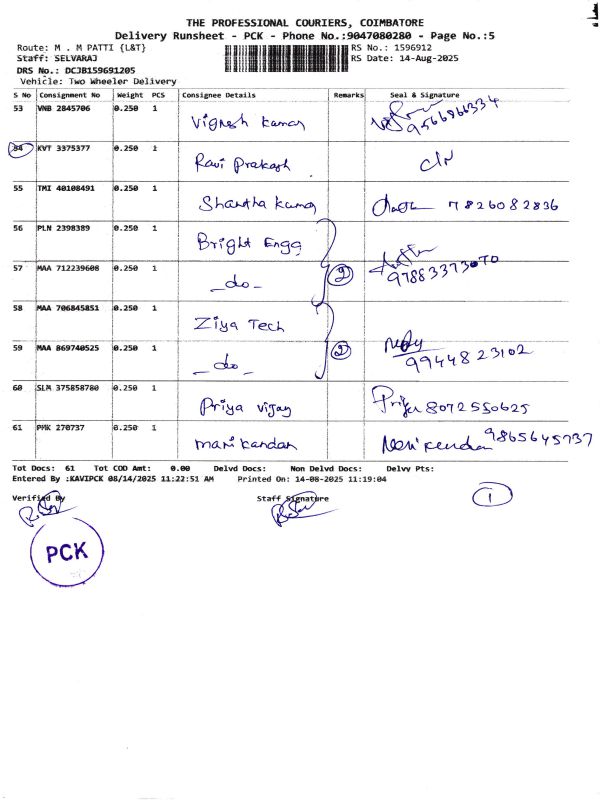 THE PROFESSIONAL COURIERS, COIMBATORE
Delivery Runsheet - PCK - Phone No.:9047080280 - Page No.:5
Route: M . M PATTI {L&T} RS No.: 1596912
Staff: SELVARAJ RS Date: 14-Aug-2025
DRS No.: DCJB159691205
Vehicle: Two Wheeler Delivery
S No Consignment No Weight PCS Consignee Details Remarks Seal & Signature
53 VNB 2845706 0.250 1 Vignesh kumar 9566866334
54 KVT 3375377 0.250 1 Ravi Prakash
55 TMI 40108491 0.250 1 Shantha kumar 7826082836
56 PLN 2398389 0.250 1 Bright Engg
57 MAA 712239608 0.250 1 -do- 2 97883373070
58 MAA 706845851 0.250 1 Ziya Tech
59 MAA 869740525 0.250 1 -do- 2 9944823102
60 SLM 375858780 0.250 1 Priya vijay Priya 8072550625
61 PMK 270737 0.250 1 manikandan Manikandan 9865645737
Tot Docs: 61 Tot COD Amt: 0.00 Delvd Docs: Non Delvd Docs: Delvy Pts:
Entered By :KAVIPCK 08/14/2025 11:22:51 AM Printed On: 14-08-2025 11:19:04
Verified By Staff Signature 1
PCK